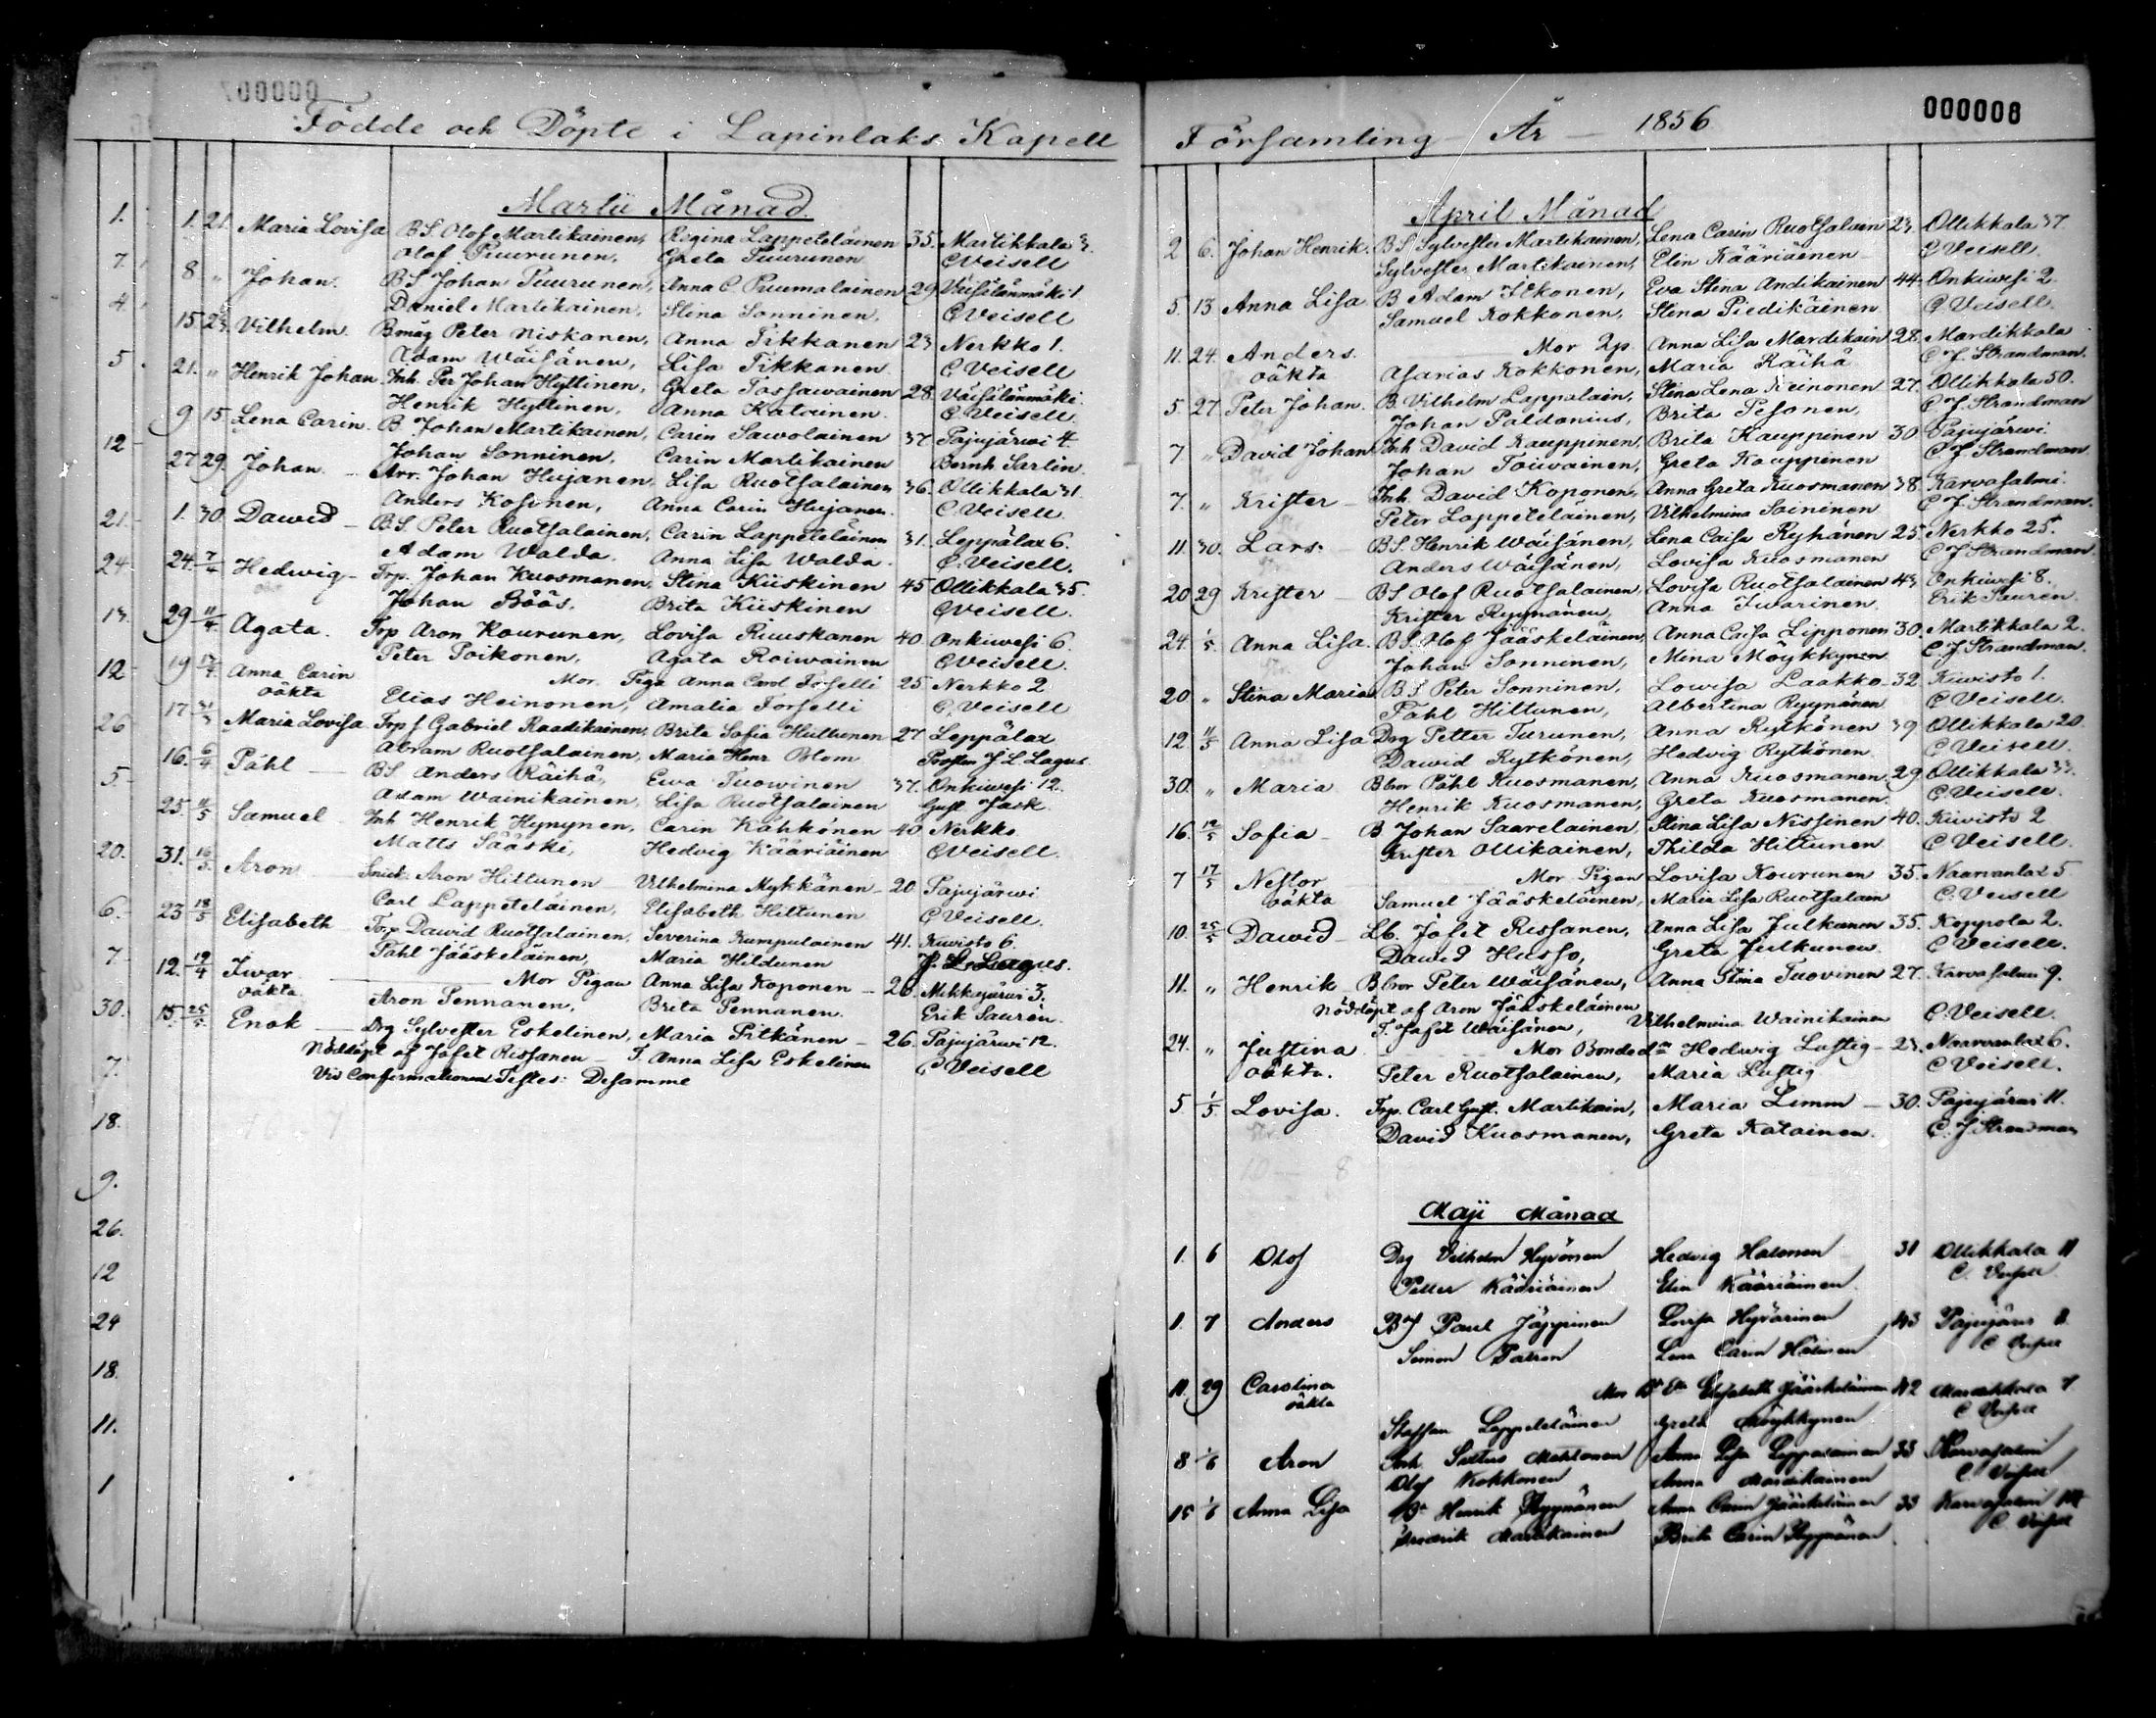 000007
Födde och Döpte i Lapinlaks Kapell
Martii Månad
1. 21. Maria Lovisa BS Olof Martikainen, Regina Lappeteläinen 35. Martikkala 3.
Olof Puurunen, Greta Puurunen C Veisell
8 " Johan. BS Johan Puurunen, Anna C. Puumalainen 29 Väisilänmäki 1
Daniel Martikainen, Stina Sonninen. C Veisell
15. Vilhelm. Bmåg Peter Niskanen, Anna Tikkanen 23 Nerkko 1.
Adam Wäisänen, Lisa Tikkanen C Veisell
21. " Henrik Johan. Inh. Per Johan Hyttinen, Greta Tossawainen 28. Väisilänmäki.
Henrik Hyttinen, Anna Katainen. C Veisell.
9 15. Lena Carin. B Johan Martikainen, Carin Sawolainen 37 Pajujärwi 4.
Johan Sonninen, Carin Martikainen Bernh Sarlin.
27 29. Johan. Arr. Johan Hujanen, Lisa Ruotsalainen 36. Ollikkala 31.
Anders Kosonen, Anna Carin Hujanen. C. Veisell.
1. 30. Dawid BS. Peter Ruotsalainen, Carin Lappeteläinen 31. Leppälax 6.
Adam Walda. Anna Lisa Walda. C. Veisell.
24. 7/4 Hedwig Trp. Johan Kuosmanen, Stina Kiiskinen 45 Ollikkala 35.
Johan Böös. Brita Kiiskinen C Veisell.
29 11/4. Agata. Trp Aron Kourunen, Lovisa Ruuskanen 40 Onkiwesi 6.
Peter Poikonen, Agata Roiwainen C Veisell.
19 17/4. Anna Carin oäkta Mor. Piga Anna Carol Forselli 25 Nerkko 2
Elias Heinonen, Amalia Forselli C. Veisell
17 31/3 Maria Lovisa Trp f Gabriel Raadikainen, Brita Sofia Huttunen 27 Leppälax
Abram Ruotsalainen, Maria Henr Blom Prosten J. L Lagus.
16. 6/4 Påhl BS Anders Räihä, Ewa Tuowinen 37. Onkiwesi 12.
Adam Wainikainen, Lisa Ruotsalainen Gust Jack.
25. 11/5 Samuel Inh Henrik Hynynen, Carin Kähkönen 40 Nerkko
Matts Sääski, Hedvig Kääriäinen C Veisell.
31. 16/5. Aron Snick. Aron Hiltunen Vilhelmina Mykkänen 20. Pajujärwi
Carl Lappeteläinen, Elisabeth Hiltunen C Veisell.
23 18/5 Elisabeth Trp David Ruotsalainen, Severina Kumpulainen 41. Kuwisto 6.
Påhl Jääskeläinen, Maria Hildunen J. L. Lagus.
12. 19/4 Iwar oäkta. Mor Pigan Anna Lisa Koponen 26. Mehkyärwi 3.
Aron Pennanen, Brita Pennanen. Erik Saurèn.
15. 25/5. Enok Drg Sylvester Eskelinen, Maria Pitkänen 26. Pajujärwi 12.
Nöddöpt af Jafet Rissanen T. Anna Lisa Eskelinen C Veisell
Vid Confirmationen Testes: Desamme
1.
7.
4.
5.
12
21.
24
13.
12
26
5
20.
6.
7
30.
7.
18.
9.
26.
12
24
18.
11.
1
Församling År 1856
000008
April Månad
2 6. Johan Henrik. BS Sylvester Martikainen, Lena Carin Ruotsalainen 23. Ollikkala 37.
Sylvester Martikainen, Elin Kääriäinen C Veisell.
5. 13. Anna Lisa B Adam Itkonen, Eva Stina Andikainen 44. Onkiwesi 2.
Samuel Kokkonen, Stina Piedikäinen C Veisell.
11. 24. Anders. oäkta Mor Anna Lisa Mardikain 28. Mardikkala
Asarias Kokkonen, Maria Räihä C J. Strandman.
5. 27. Peter Johan. B. Vilhelm Leppalain, Stina Lena Keinonen 27. Ollikkala 50.
Johan Paldanius, Brita Pesonen, C J. Strandman
7 " David Johan Inh David Kauppinen, Brita Kauppinen 30 Pajujärwi
Johan Toiwainen, Greta Kauppinen C J Strandman
7. " Krister Inh. David Koponen, Anna Greta Kuosmanen 38. Karvasalmi.
Peter Lappeteläinen, Vilhelmina Soininen C J. Strandman.
11. 30. Lars. BS. Henrik Wäisänen, Lena Caisa Ryhänen 25. Nerkko 25.
Anders Wäisänen, Lovisa Kuosmanen C J Strandman
20 29 Krister BS Olof Ruotsalainen, Lovisa Ruotsalainen 43. Onkiwesi 8.
Krister Ryynänen, Anna Iwarinen Erik Sauren.
24. 1/5. Anna Lisa. BS. Olof Jääskeläinen, Anna Caisa Lipponen 30. Martikkala 2.
Johan Sonninen, Mina Möykkynen C. J Strandman.
20. " Stina Maria BS Peter Sonninen, Lowisa Laakko 32. Kuwisto 1.
Påhl Hiltunen, Albertina Ryynänen C Veisell.
12. 11/5 Anna Lisa Drg Petter Turunen, Anna Rytkönen 39 Ollikkala 20.
Dawid Rytkönen, Hedvig Rytkönen. C Veisell.
30. " Maria B bror Påhl Kuosmanen, Anna Kuosmanen 29. Ollikkala 33.
Henrik Kuosmanen, Greta Kuosmanen. C. Veisell.
16. Sofia B Johan Saarelainen, Stina Lisa Nissinen 40. Kuvisto 2
Krister Ollikainen, Thilda Hiltunen C Veisell.
7 17/5 Nestor oäkta Mor Pigan Lovisa Kourunen 35. Naarvanlax 5
Samuel Jääskeläinen, Maria Lisa Ruotsalain C. Veisell
10. 25/5 Dawid Lb. Jafet Rissanen, Anna Lisa Julkunen 35. Koppola 2.
David Husso, Greta Julkunen C Veisell.
11. " Henrik B bror Peter Wäisänen, Anna Stina Tuovinen 27. Karvasalmi 9.
Nöddöpt af Aron Jääskeläinen
T. Jafet Wäisänen, Vilhelmina Wainikainen C. Veisell.
24. " Justina oäkta. Mor Bonded Hedwig Lustig 23. Naarvanlax 6.
Peter Ruotsalainen, Maria Lustig C Veisell.
5 1/5. Lovisa. Trp. Carl Gust. Martikain, Maria Limm 30. Pajujärwi 11.
David Kuosmanen, Greta Katainen. C. J Strandman
Maji Månad
1. 6 Olof Drg Vilhelm Hyvönen Hedvig Halonen 31 Ollikkala 11
Petter Kääriäinen Elin Kääriäinen C. Veisell
1. 7 Anders BS Paul Jäppinen Lovisa Hyvärinen 43 Pajujärvi
Simon Lena Carin C Veisell
11. 29 Carolina oäkta Mor Elisabeth Jääskeläinen 42 Mardikkala 7
Staffan Lappeteläinen Greta Möykkynen C Veisell
8 1/6 Aron Inh Anna Lisa Leppalainen 33 Karvasalmi
Olof Kokkonen Anna Mardikainen C Veisell
15 1/6 Anna Lisa Henrik Ryynänen Anna Carin Jääskeläinen 33 Karvasalmi
Fredrik Martikainen Brita Carin Ryynänen C Veisell